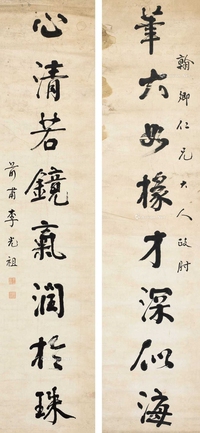 翰卿仁兄大人政
筆大如椽才深似海
心清若鏡氣潤於珠
李光祖